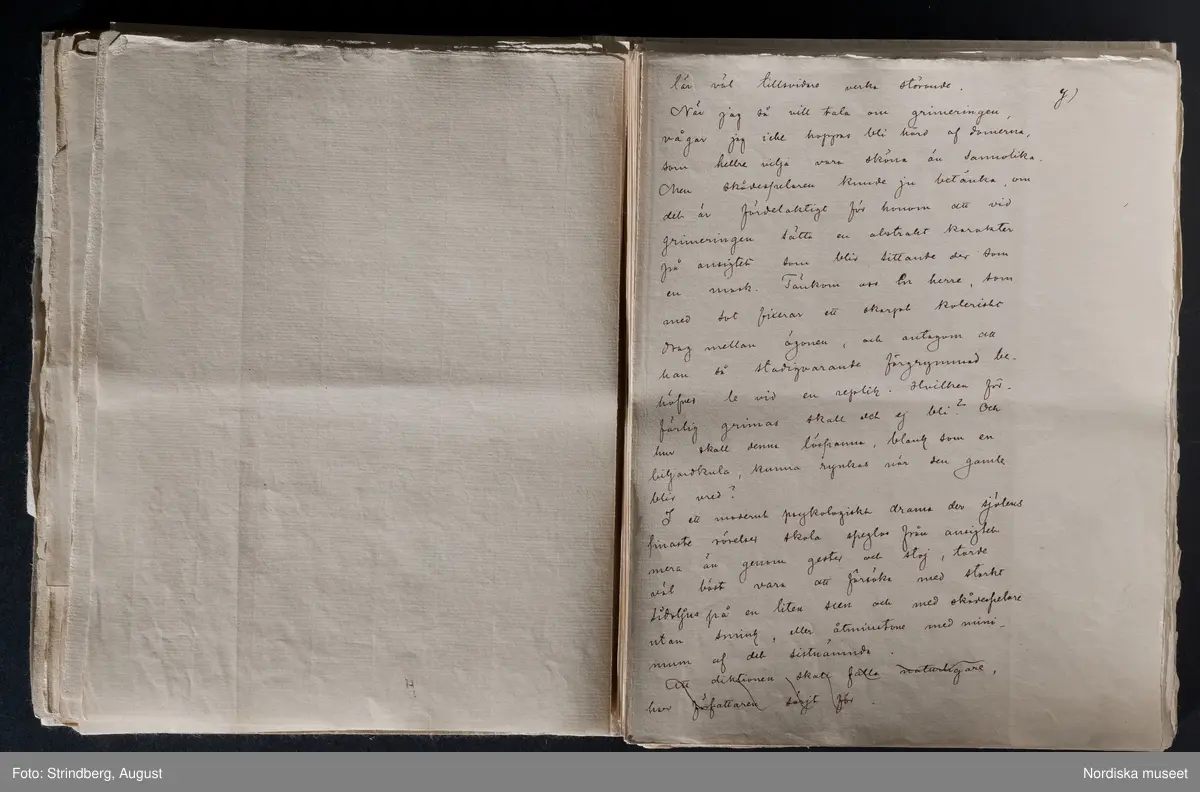 y)
lär väl tillsvidare verka störande.
När jag så vill tala om grimeringen,
vågar jag icke hoppas bli hörd af damerna,
som hellre vilja vara sköna än sannolika.
Men skådespelaren kunde ju betänka, om
det är fördelaktigt för honom att vid
grimeringen sätta en abstrakt karakter
på ansigtet som blir sittande der som
en mask. Tänkom oss en herre, som
med sot fixerar ett skarpt koleriskt
drag mellan ögonen, och antagom att
han så stadigvarande förgrymmad be-
höfver le vid en replik. Hvilken för-
färlig grimas skall det ej bli? Och
hur skall denna löspanna, blank som en
biljardkula, kunna rynkas när den gamle
blir vred?
I ett modernt psykologiskt drama der själens
finaste rörelser skola speglas från ansigtet
mera än genom gester och stoj, torde
väl bäst vara att försöka med starkt
sidoljus på en liten scen och med skådespelare
utan smink, eller åtminstone med mini-
mum af det sistnämnda.
Att diktionen skall falla naturligare,
har författaren sörjt för.
Foto: Strindberg, August
Nordiska museet